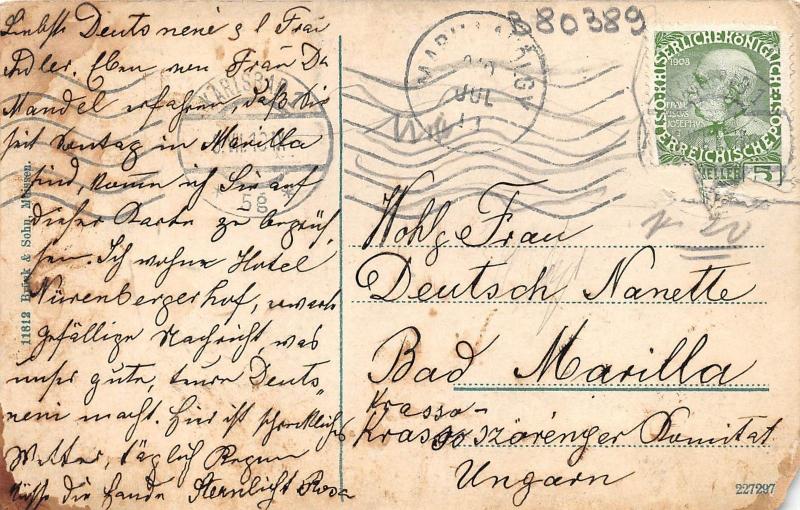 Liebste Deutsnéni u l Frau
Adler. Eben von Frau Da
Mandel erfahren, daß Sie
seit Sonntag in Marilla
sind, komm ich Sie auf
dieser Karte zu begrüs-
sen. Ich wohne Hotel
Nürenbergerhof, erwarte
gefällige Nachricht was
unser gute, teure Deuts
neni macht. Hier ist schreckliches
Wetter, täglich Regen
Küsse die Hände Sternlicht Rosa
11812 Brück & Sohn, Meissen.
KARLSBAD
5g
JUL
380389
KAISERLICHE KÖNIGLICHE
1908
ÖSTERREICHISCHE POST
HELLER 5
20
Wohlg Frau
Deutsch Nanette
Bad Marilla
Krasso-
Krasso Szörenger Komitat
Ungarn
227297